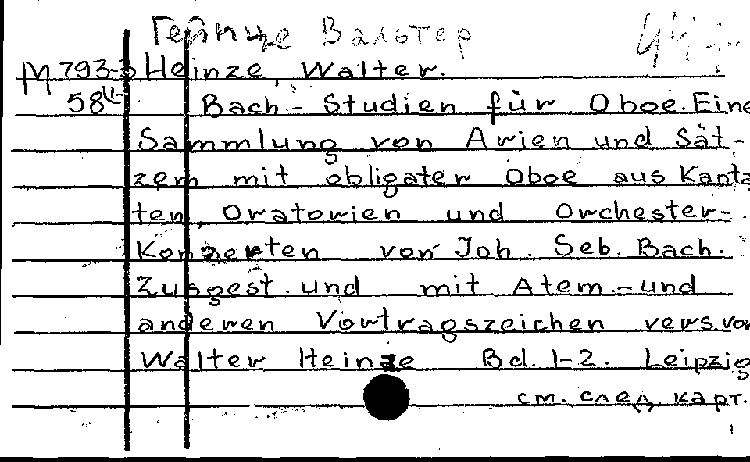 Гейнце Вальтер
М 793-3 Heinze, Walter.
58 Bach-Studien für Oboe. Eine
Sammlung von Arien und Sät-
zem mit obligater Oboe aus Kanta
ten, Oratorien und Orchester-
Konzerten von Joh. Seb. Bach.
Zusgest. und mit Atem- und
anderen Vortragszeichen vers. von
Walter Heinze Bd. 1-2. Leipzig
см. след. карт.